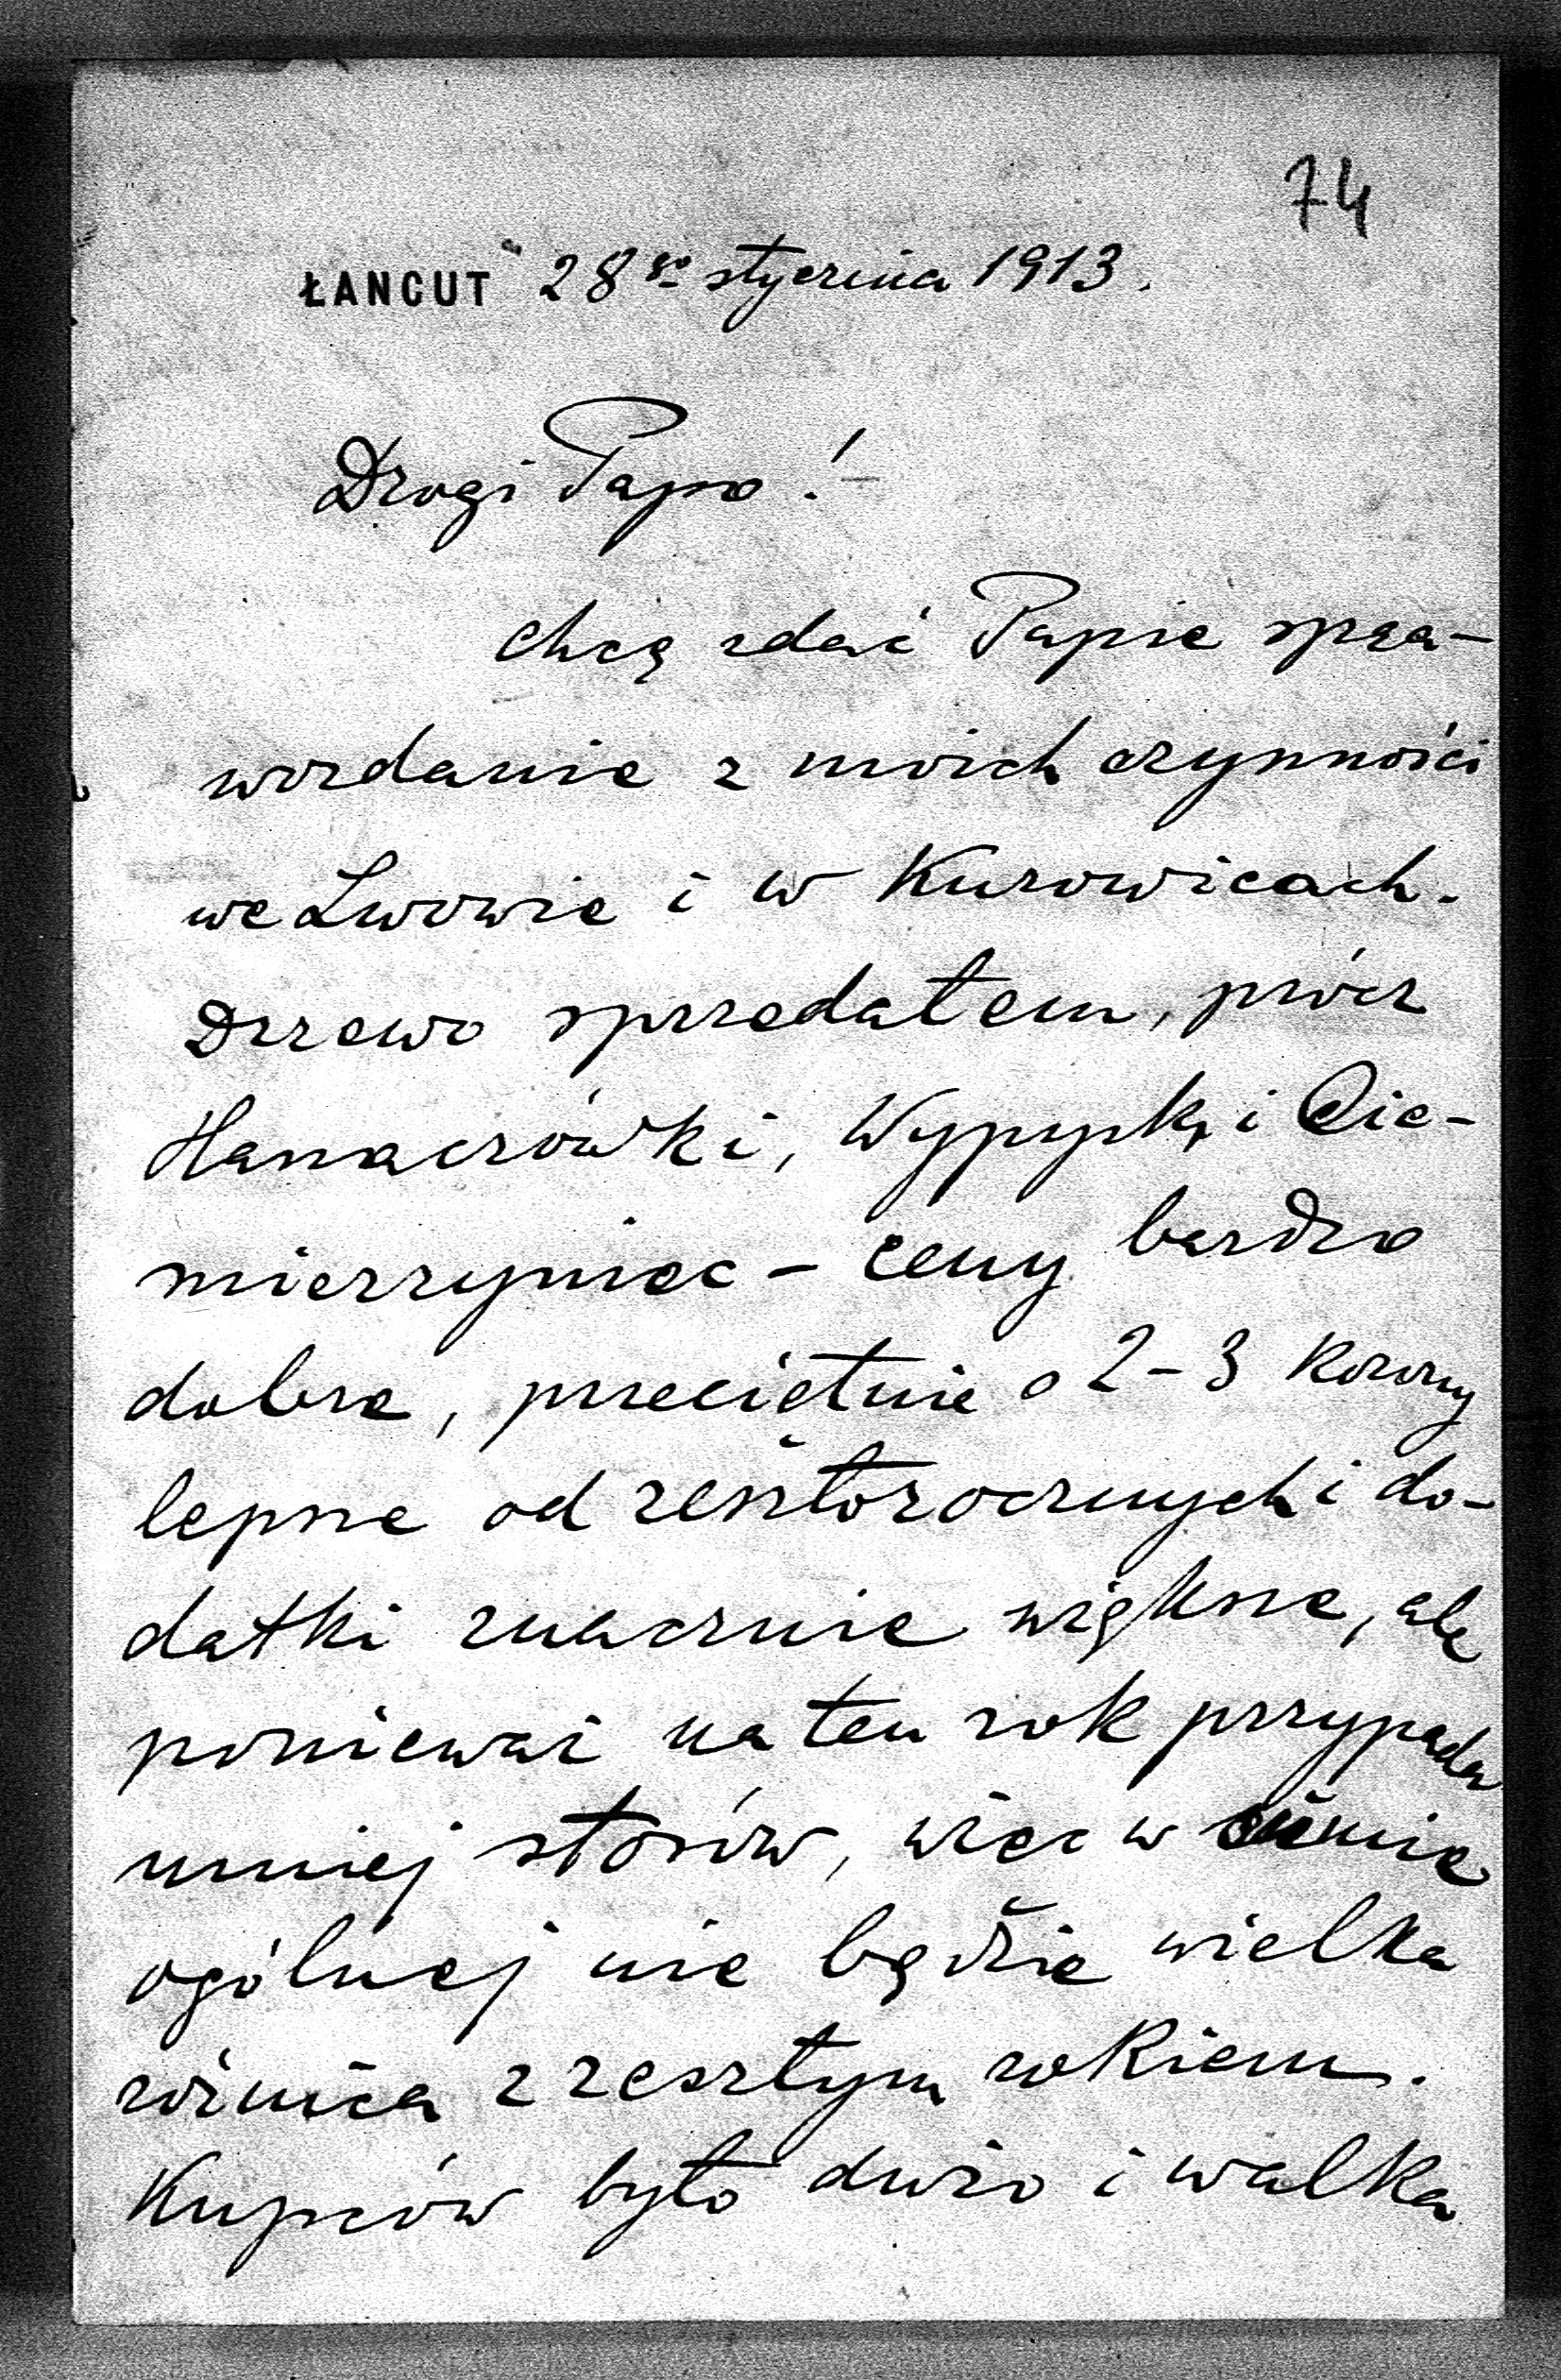 74
ŁANCUT 28go stycznia 1913.
Drogi Papo!
Chcę zdać Papie spra-
wozdanie z moich czynności
we Lwowie i w Kurowicach.
Drzewo sprzedałem, prócz
Hanaczówki, Wypysk i Cie-
mierzyniec - ceny bardzo
dobre, przeciętnie o 2-3 korony
lepsze od zeszłorocznych i do-
datki znacznie większe, ale
ponieważ na ten rok przypada
mniej stosów, więc w sumie
ogólnej nie będzie wielka
różnica z zeszłym rokiem.
Kupców było dużo i walka